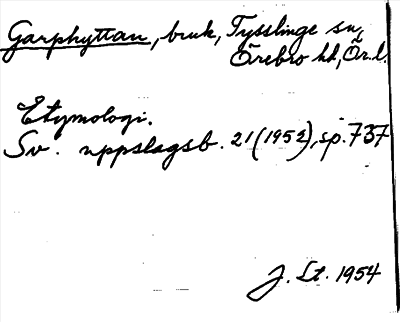 Garphyttan, bruk, Tysslinge sn,
Örebro hd, Ör. l.
Etymologi.
Sv. uppslagsb. 21 (1952), sp. 737
J. Lt. 1954